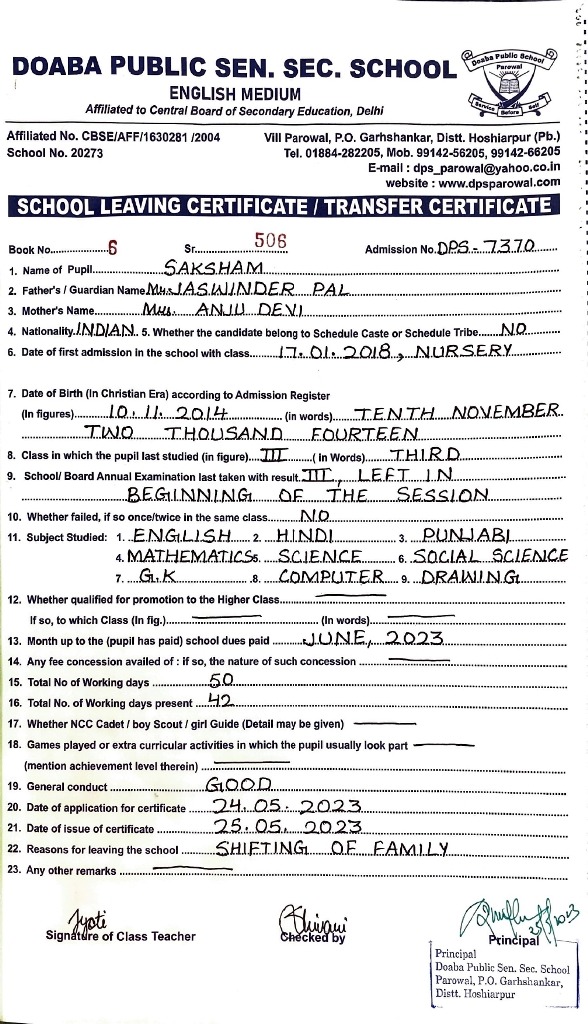 DOABA PUBLIC SEN. SEC. SCHOOL
ENGLISH MEDIUM
Affiliated to Central Board of Secondary Education, Delhi
Doaba Public School
Parowal
Service Before Self
Affiliated No. CBSE/AFF/1630281 /2004
School No. 20273
Vill Parowal, P.O. Garhshankar, Distt. Hoshiarpur (Pb.)
Tel. 01884-282205, Mob. 99142-56205, 99142-66205
E-mail : dps_parowal@yahoo.co.in
website : www.dpsparowal.com
SCHOOL LEAVING CERTIFICATE / TRANSFER CERTIFICATE
Book No. 6 Sr. 506 Admission No. DPS-7370
1. Name of Pupil SAKSHAM
2. Father's / Guardian Name Mr. JASWINDER PAL
3. Mother's Name Mrs. ANJU DEVI
4. Nationality INDIAN 5. Whether the candidate belong to Schedule Caste or Schedule Tribe NO
6. Date of first admission in the school with class 17.01.2018, NURSERY
7. Date of Birth (In Christian Era) according to Admission Register
(In figures) 10.11.2014 (in words) TENTH NOVEMBER
TWO THOUSAND FOURTEEN
8. Class in which the pupil last studied (in figure) III ( in Words) THIRD
9. School/ Board Annual Examination last taken with result III, LEFT IN
BEGINNING OF THE SESSION
10. Whether failed, if so once/twice in the same class NO
11. Subject Studied: 1. ENGLISH 2. HINDI 3. PUNJABI
4. MATHEMATICS 5. SCIENCE 6. SOCIAL SCIENCE
7. G.K 8. COMPUTER 9. DRAWING
12. Whether qualified for promotion to the Higher Class
If so, to which Class (In fig.) (In words)
13. Month up to the (pupil has paid) school dues paid JUNE, 2023
14. Any fee concession availed of : if so, the nature of such concession
15. Total No of Working days 50
16. Total No. of Working days present 42
17. Whether NCC Cadet / boy Scout / girl Guide (Detail may be given)
18. Games played or extra curricular activities in which the pupil usually look part
(mention achievement level therein)
19. General conduct GOOD
20. Date of application for certificate 24.05.2023
21. Date of issue of certificate 25.05.2023
22. Reasons for leaving the school SHIFTING OF FAMILY
23. Any other remarks
Jyoti
Signature of Class Teacher
Shivani
Checked by
Principal
Principal
Doaba Public Sen. Sec. School
Parowal, P.O. Garhshankar,
Distt. Hoshiarpur